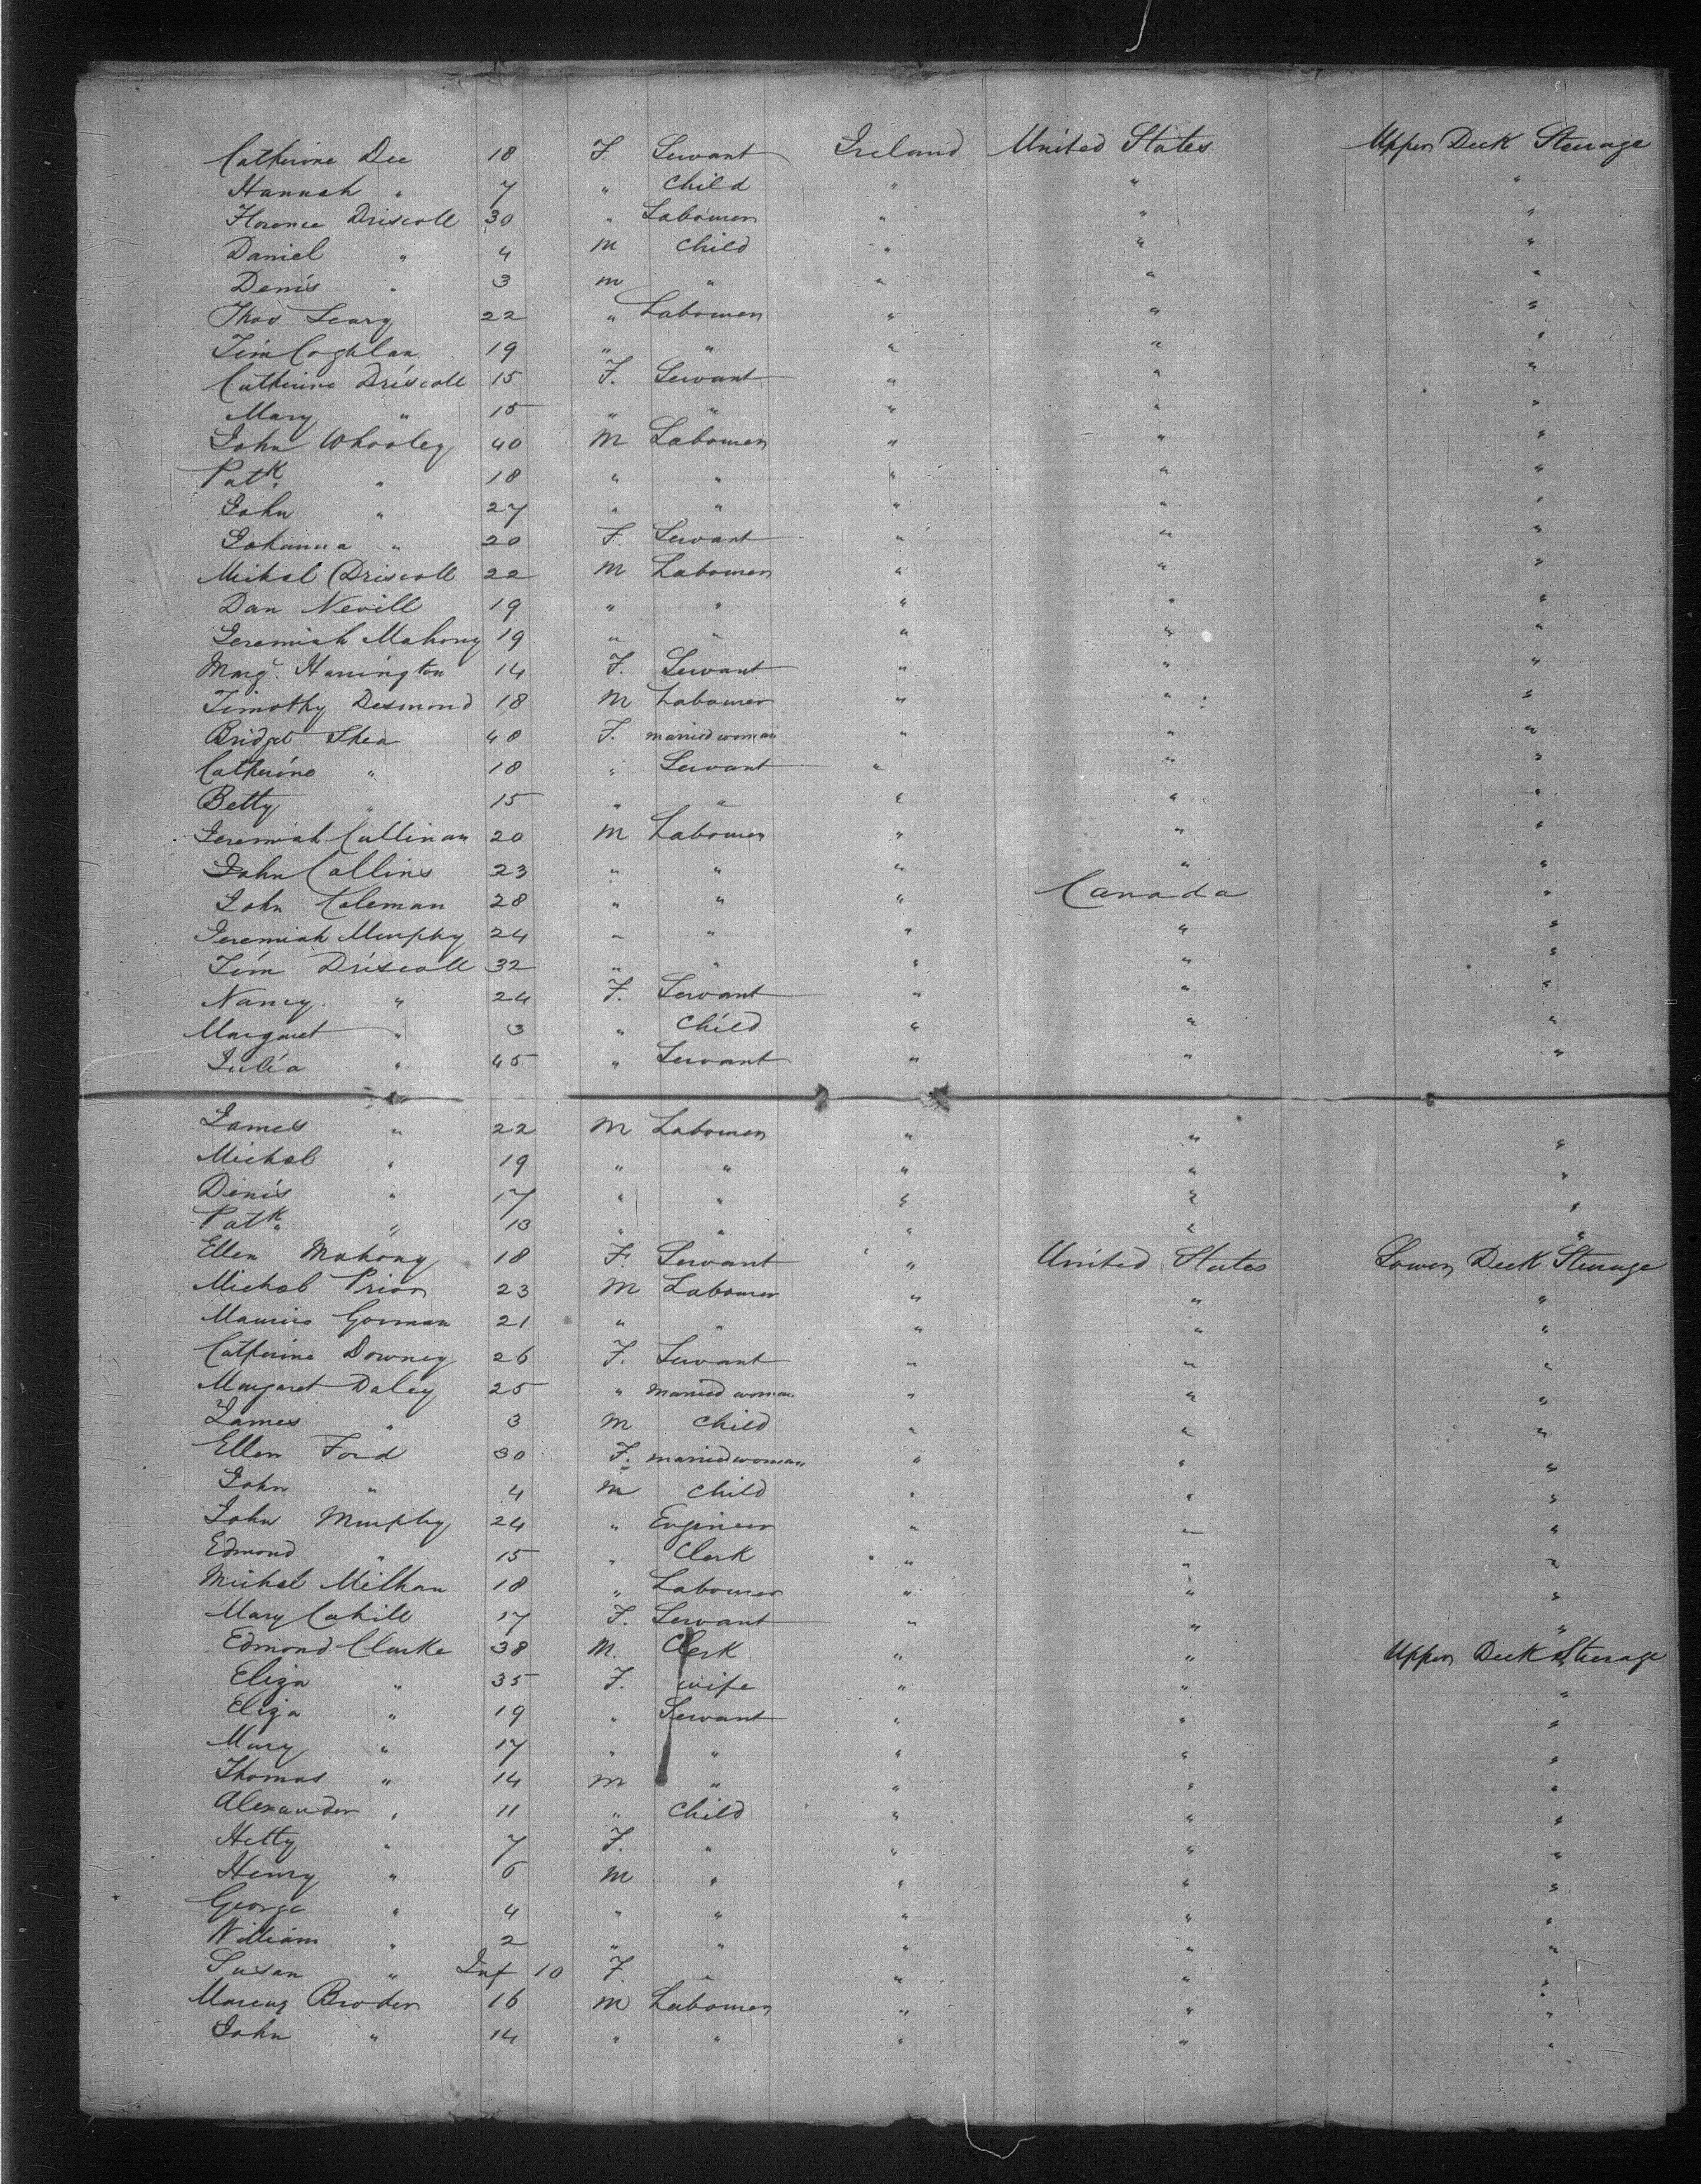 Catherine Dee 18 F. Servant Ireland United States Upper Deck Steerage
Hannah " 7 " Child " " "
Florence Driscoll 30 " Labourer " " "
Daniel " 4 M Child " " "
Denis " 3 m " " " "
Thos Leary 22 " Labourer " " "
Tim Coghlan 19 " " " " "
Catherine Driscoll 15 F. Servant " " "
Mary " 15 " " " " "
John Whooley 40 M Labourer " " "
Patk. " 18 " " " " "
John " 27 " " " " "
Johanna " 20 F. Servant " " "
Michal Driscoll 22 M Labourer " " "
Dan Nevill 19 " " " " "
Jeremiah Mahony 19 " " " " "
Margt. Harrington 14 F. Servant " " "
Timothy Desmond 18 M Labourer " " "
Bridget Shea 40 F. married woman " " "
Catherine " 18 " Servant " " "
Betty " 15 " " " " "
Jeremiah Cullinan 20 M Labourer " " "
John Collins 23 " " " " "
John Coleman 28 " " " Canada "
Jeremiah Murphy 24 " " " " "
Tim Driscoll 32 " " " " "
Nancy " 24 F. Servant " " "
Margaret " 3 " Child " " "
Julia " 45 " Servant " " "
James " 22 M Labourer " " "
Michal " 19 " " " " "
Denis " 17 " " " " "
Patk. " 13 " " " " "
Ellen Mahony 18 F. Servant " United States Lower Deck Steerage
Michal Prior 23 M Labourer " " "
Maurice Gorman 21 " " " " "
Catherine Downey 26 F. Servant " " "
Margaret Daley 25 " married woman " " "
James " 3 M Child " " "
Ellen Ford 30 F. married woman " " "
John " 4 M Child " " "
John Murphy 24 " Engineer " " "
Edmond " 15 " Clerk " " "
Michal Milhan 18 " Labourer " " "
Mary Cahill 17 F. Servant " " "
Edmond Clarke 38 M. Clerk " " Upper Deck Steerage
Eliza " 35 F. wife " " "
Eliza " 19 " Servant " " "
Mary " 17 " " " " "
Thomas " 14 M " " " "
Alexander " 11 " Child " " "
Hetty " 7 F. " " " "
Henry " 6 M " " " "
George " 4 " " " " "
William " 2 " " " " "
Susan " Inf 10 F. " " " "
Marcus Broder 16 M Labourer " " "
John " 14 " " " " "